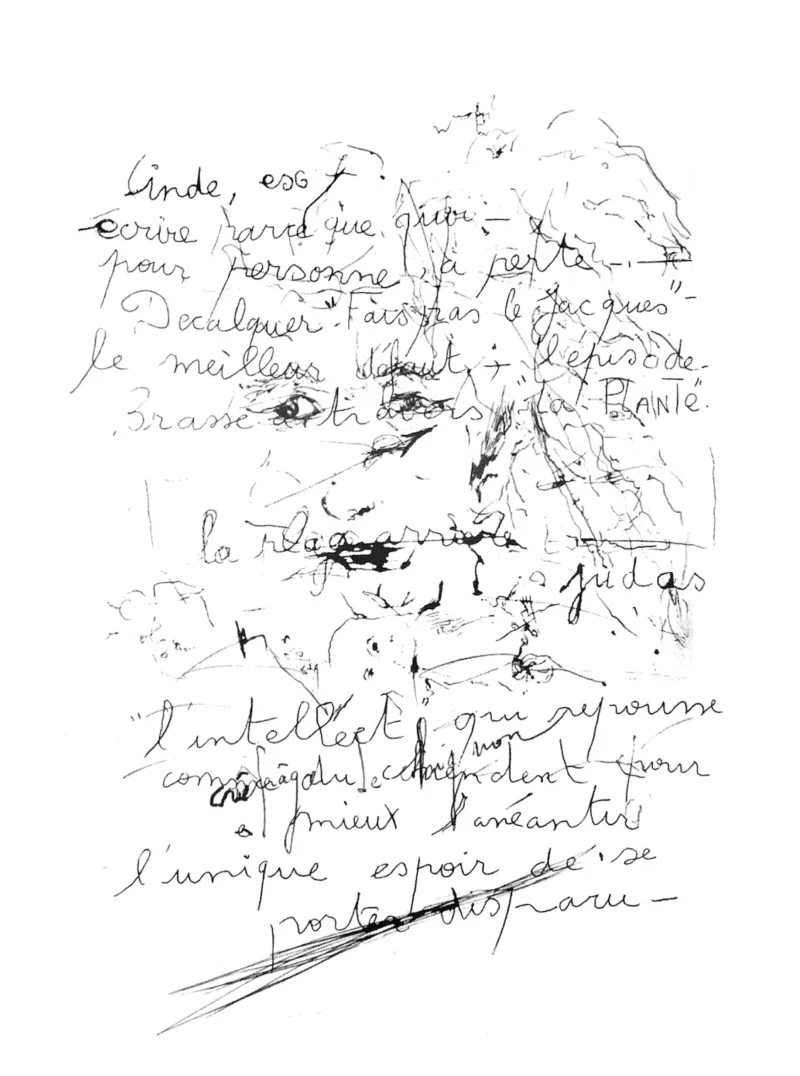 écrire parce que quoi –
pour personne, à perte –
Decalquer "Fais pas le Jacques" –
le meilleur défaut, : l'épisode.
Brasse à travers, "la PLANTE".
la plage arrière
judas
"l'intellect" qui repousse
comme du chiendent pour
mieux l'anéantir
l'unique espoir de se
porter disparu –